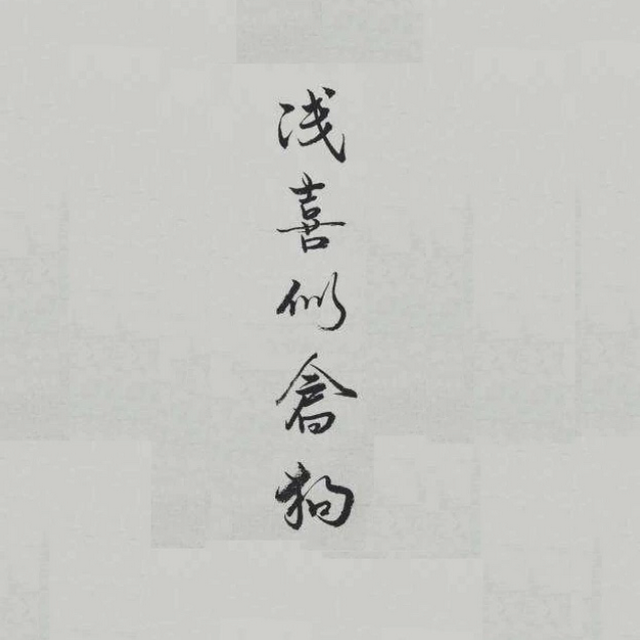 浅喜似仓狗